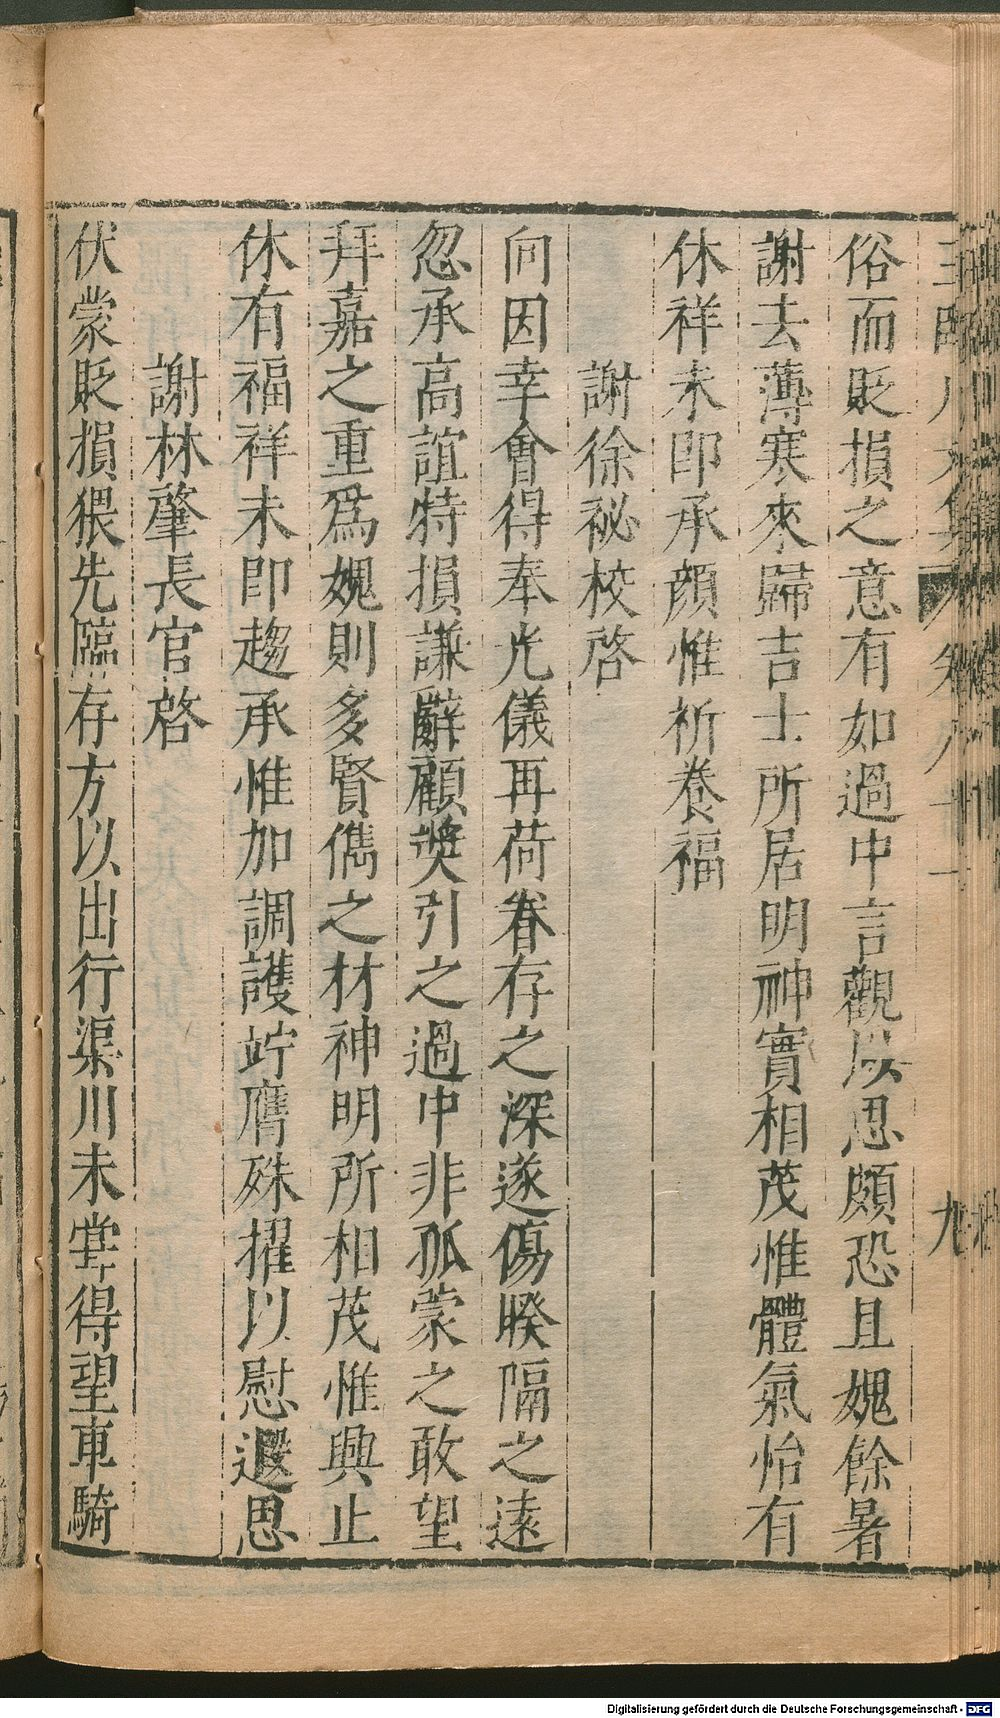 俗而貶損之意有如過中言觀以思頗恐且媿餘暑
謝去薄寒來歸吉士所居明神實相茂惟體氣怡有
休祥未卽承顔惟祈養福
謝徐祕校啓
向因幸會得奉光儀再荷眷存之深遂傷暌隔之遠
忽承高誼特損謙辭顧奬引之過中非孤蒙之敢望
拜嘉之重爲媿則多賢儁之材神明所相茂惟興止
休有福祥未卽趨承惟加調護竚膺殊擢以慰遐思
謝林肇長官啓
伏蒙貶損猥先臨存方以出行渠川未甞得望車騎
九
Digitalisierung gefördert durch die Deutsche Forschungsgemeinschaft - DFG